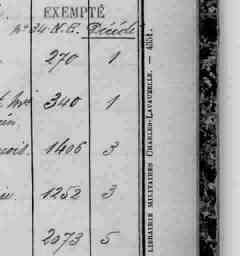 EXEMPTÉ
N° 34 N.E. Décédé
270 1
340 1
1406 3
1252 3
2073 5
LIBRAIRIE MILITAIRES CHARLES-LAVAUZELLE. — 4351.